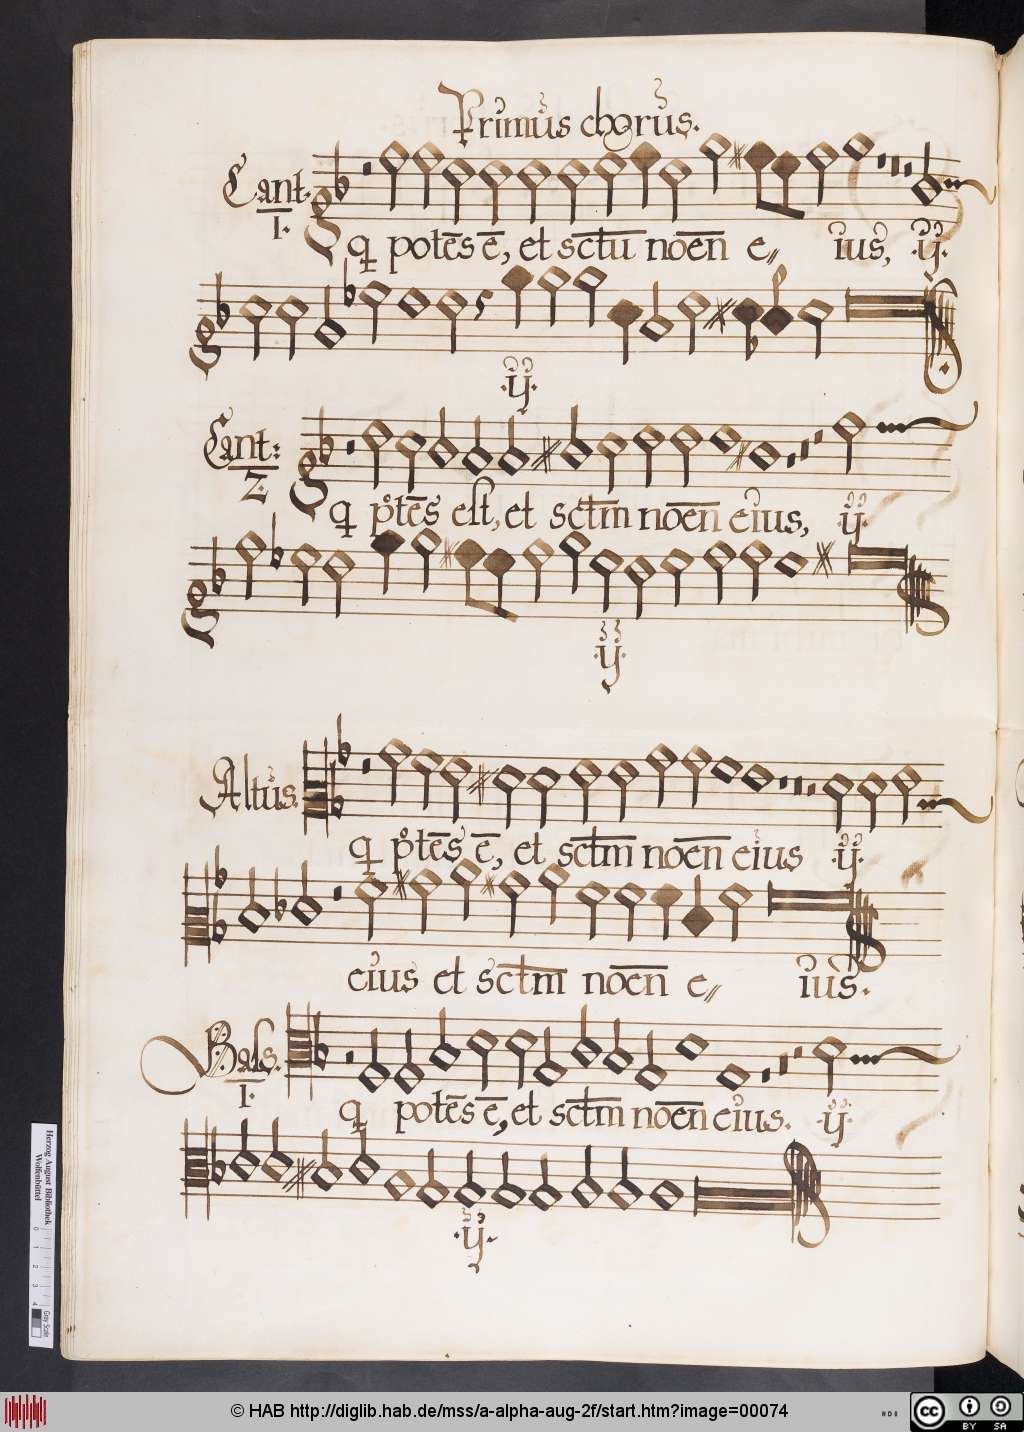 Primus chorus.
Cant.
1.
q potēs ē, et sctum noēn e⸗ ius, .ij.
.ij.
Cant:
2.
q potēs est, et sctm noēn eius, .ij.
.ij.
Altus.
q potēs ē, et sctm noēn eius .ij.
eius et sctm noēn e⸗ ius.
Bass.
1.
q potēs ē, et sctm noēn eius. .ij.
.ij.
Herzog August Bibliothek
Wolfenbüttel
0 1 2 3 4
Gray Scale
© HAB http://diglib.hab.de/mss/a-alpha-aug-2f/start.htm?image=00074
cc BY SA